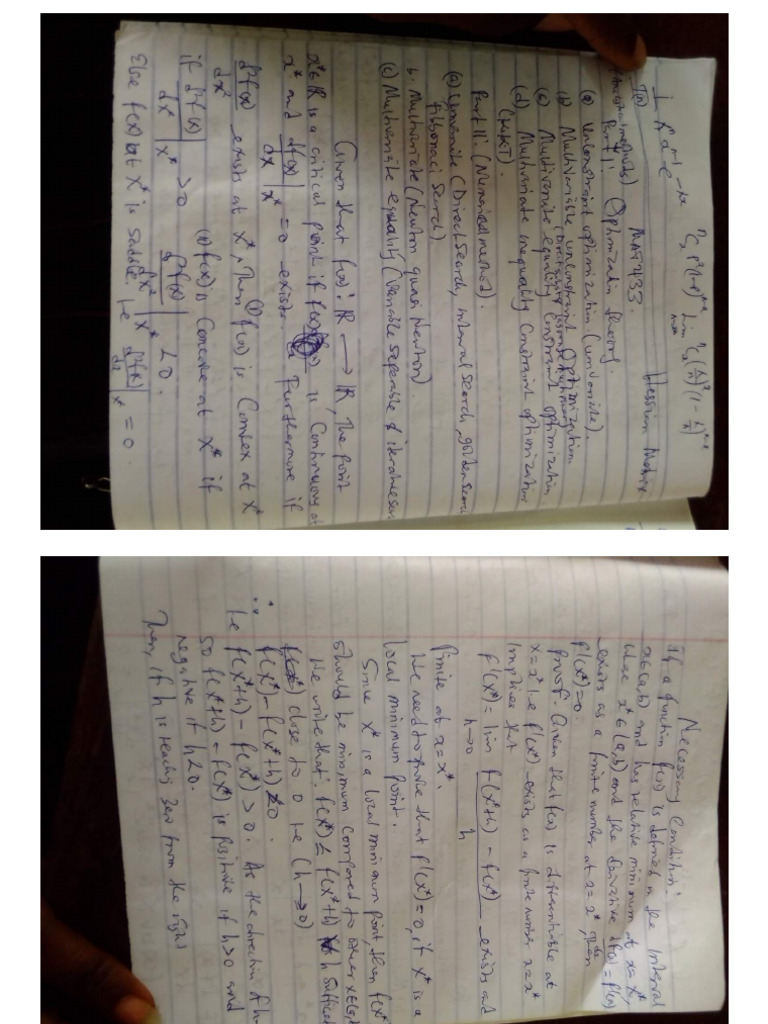 Hessian Matrix
I(a) MAT 433.
(Analytical methods)
Part I: Optimization theory.
(a) Unconstraint optimization. (univariate).
(b) Multivariable unconstraint optimization
(c) Multivariate equality constraint optimization
(d) Multivariate inequality constraint optimization
(KKT).
Part II: (Numerical method).
(a) Univariate (Direct search, interval search, golden search
fibbonaci search).
b. Multivariate (Newton quasi Newton).
(c) Multivariate equality (Variable separable &
Given that f(x): ℝ → ℝ, the point
x* ∈ ℝ is a critical point if f(x) is continuous at
x* and df(x)/dx |x* = 0 exists. Furthermore if
d²f(x)/dx² exists at x*, then (i) f(x) is Convex at x*
if d²f(x)/dx² |x* > 0 (ii) f(x) is Concave at x* if
d²f(x)/dx² |x* < 0.
Else f(x) at x* is saddle i.e d²f(x)/dx |x* = 0
Necessary Condition:
If a function f(x) is defined in the interval
x∈(a,b) and has relative minimum at x=x*,
where x*∈(a,b) and the derivative df(x) = f'(x)
exists as a finite number at x=x*, then
f'(x*)=0.
proof: Given that f(x) is differentiable at
x=x* i.e f'(x*) exists as a finite number x=x*
implies that
f'(x*) = lim h→0 f(x*+h) - f(x*) / h exists as
finite at x=x*.
We need to prove that f'(x*)=0, if x* is a
local minimum point.
Since x* is a local minimum point, then f(x*)
should be minimum compared to other x∈(a,b)
We write that: f(x*) ≤ f(x*+h) h sufficient
close to 0 i.e (h→0)
f(x*) - f(x*+h) ≤ 0.
∴ i.e f(x*+h) - f(x*) > 0. As the direction of h
so f(x*+h) - f(x*) is positive if h>0 and
negative if h<0.
Then, if h is reaching zero from the right